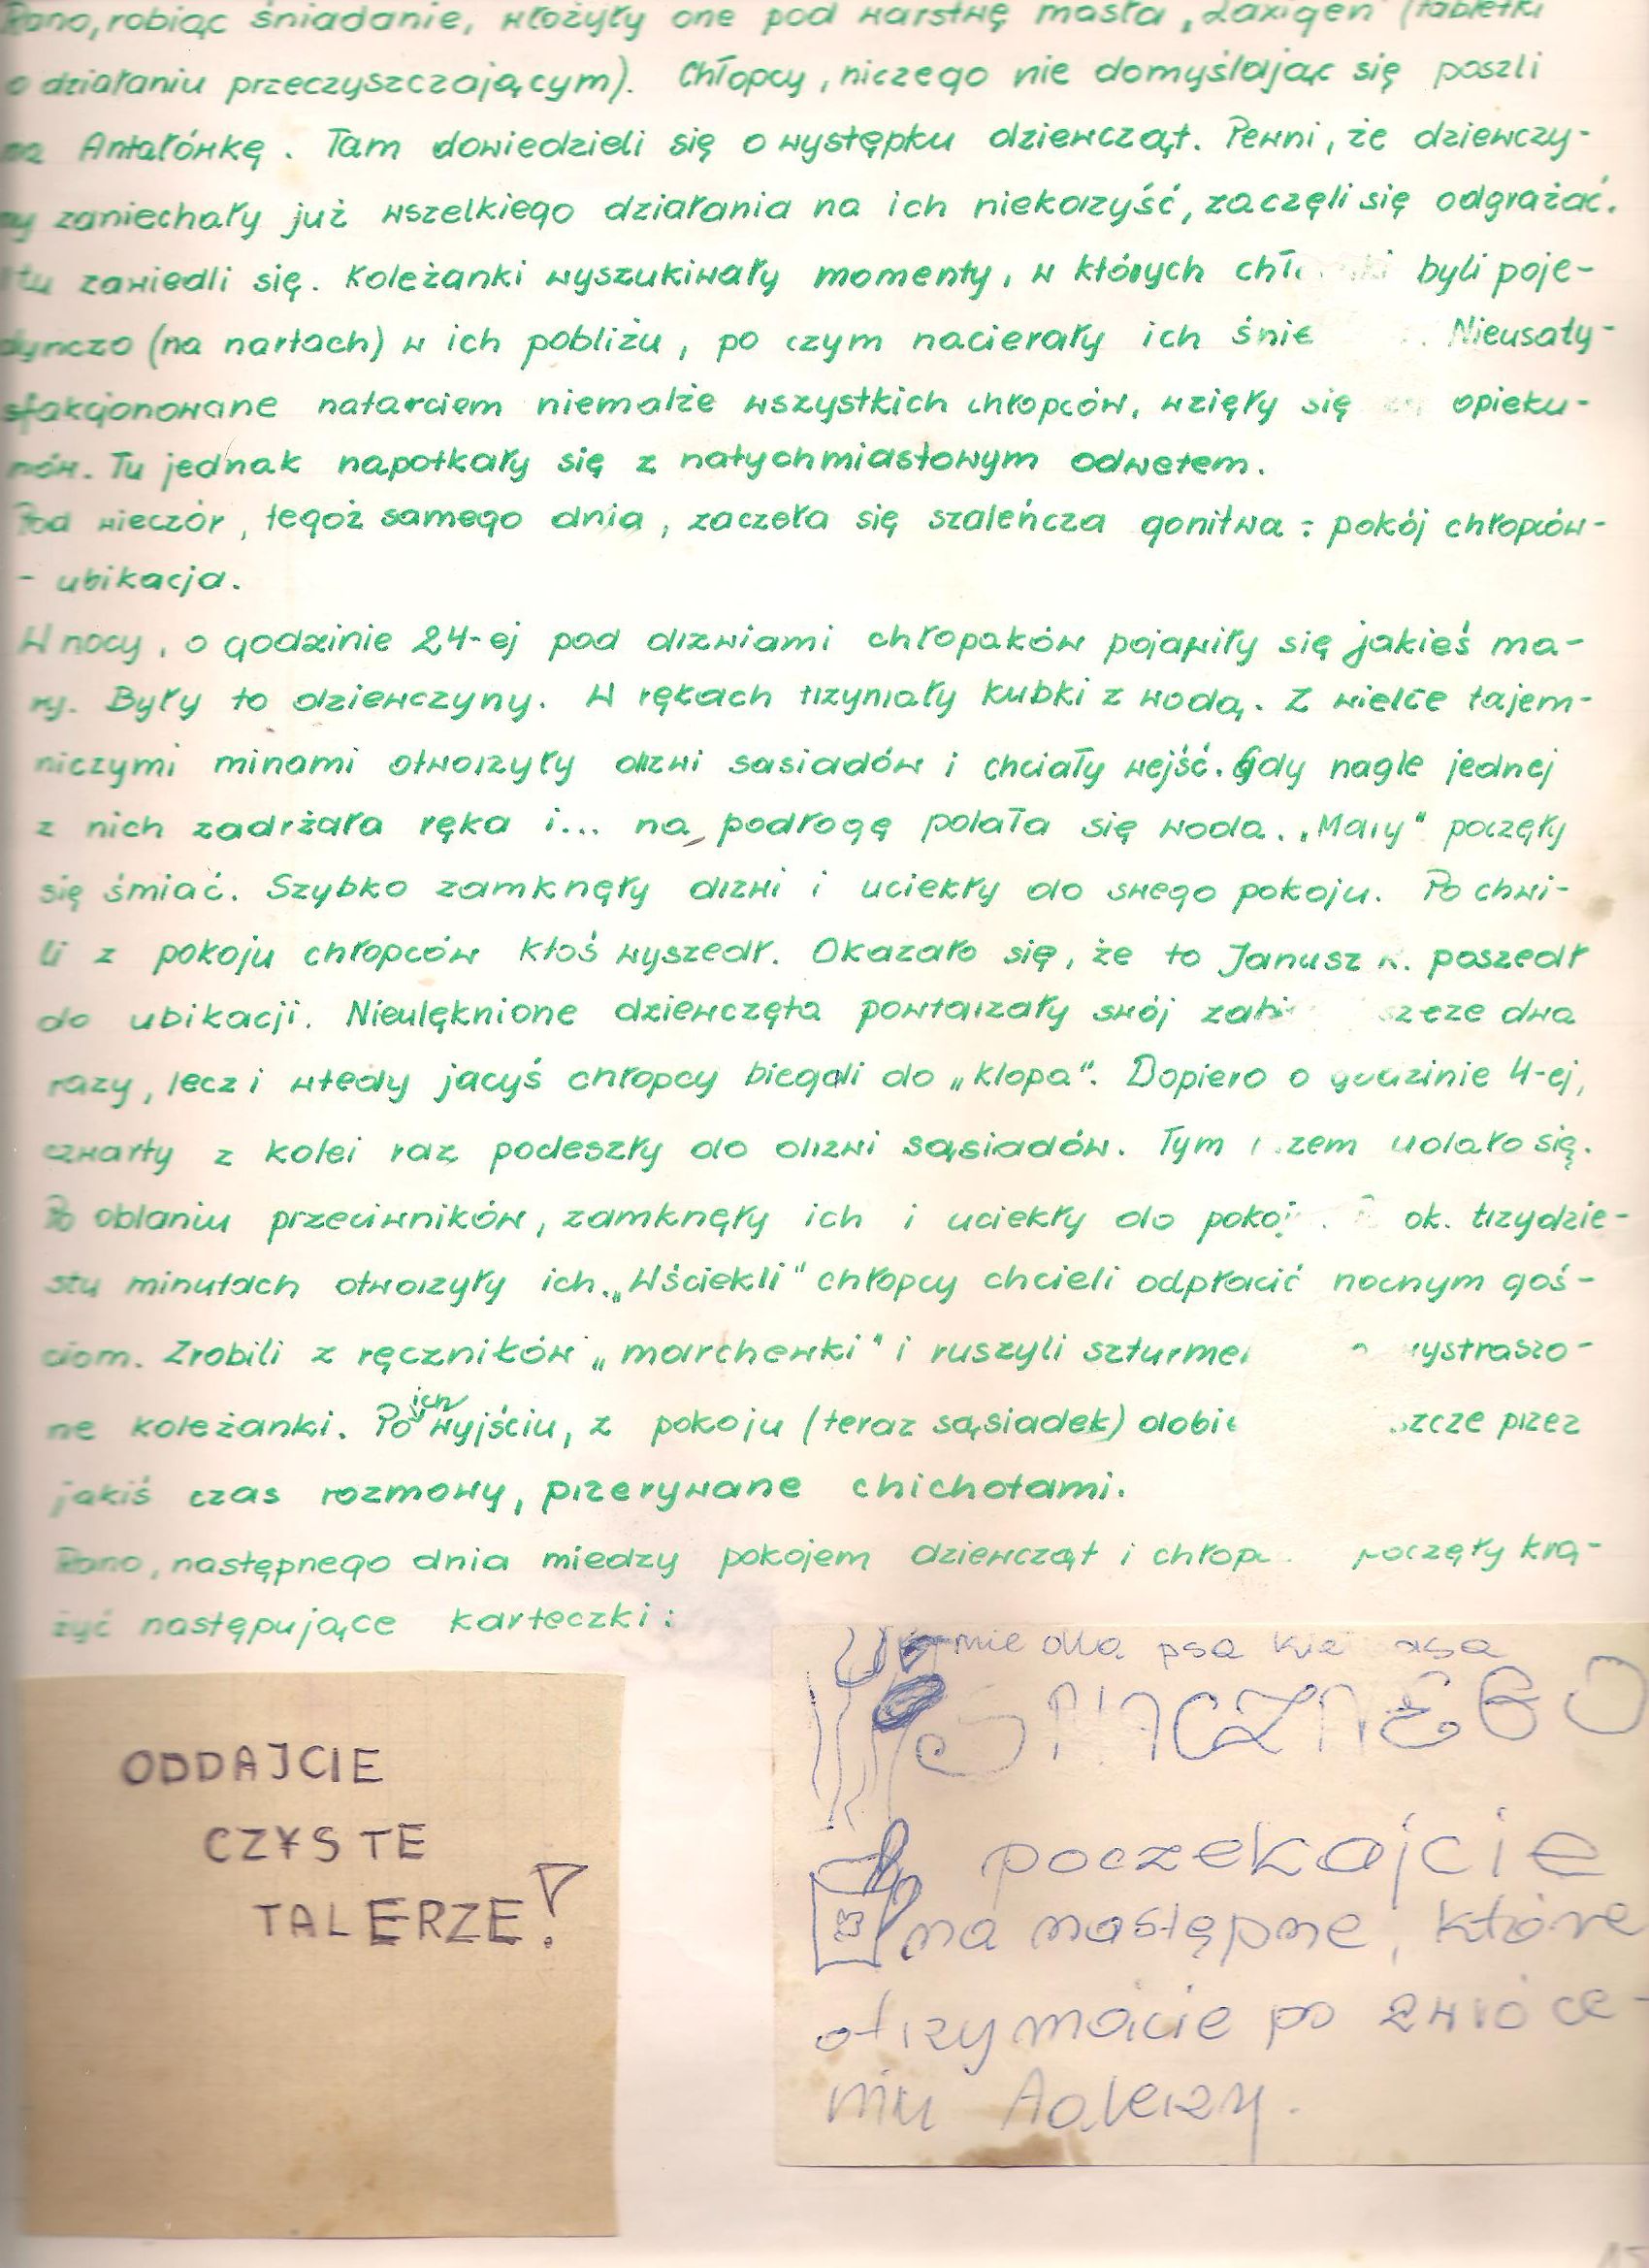 Rano, robiąc śniadanie, włożyły one pod warstwę masła „Laxigen" (tabletki
o działaniu przeczyszczającym). Chłopcy, niczego nie domyślając się poszli
na Antałówkę. Tam dowiedzieli się o występku dziewcząt. Pewni, że dziewczy-
ny zaniechały już wszelkiego działania na ich niekorzyść, zaczęli się odgrażać.
I tu zawiedli się. Koleżanki wyszukiwały momenty, w których byli poje-
dynczo (na nartach) w ich pobliżu, po czym nacierały ich Nieusaty-
sfakcjonowane natarciem niemalże wszystkich chłopców, wzięły się opieku-
nów. Tu jednak napotkały się z natychmiastowym odwetem.
Pod wieczór, tegoż samego dnia, zaczeła się szaleńcza gonitwa: pokój chłopców-
- ubikacja.
W nocy, o godzinie 24-ej pod drzwiami chłopaków pojawiły się jakieś ma-
ry. Były to dziewczyny. W rękach trzymały kubki z wodą. Z wielce tajem-
niczymi minami otworzyły drzwi sasiadów i chciały wejść. Gdy nagle jednej
z nich zadrżała ręka i... na podłogę polała się woda. „Mary" poczęły
się śmiać. Szybko zamknęły drzwi i uciekły do swego pokoju. Po chwi-
li z pokoju chłopców ktoś wyszedł. Okazało się, że to Janusz K. poszedł
do ubikacji. Nieulęknione dziewczęta powtarzały swój dwa
razy, lecz i wtedy jacyś chłopcy biegali do „klopa". Dopiero o godzinie 4-ej,
czwarty z kolei raz podeszły do drzwi sąsiadów. Tym razem udało się.
Po oblaniu przeciwników, zamknęły ich i uciekły do ok. trzydzie-
stu minutach otworzyły ich. „Wściekli" chłopcy chcieli odpłacić nocnym goś-
ciom. Zrobili z ręczników „marchewki" i ruszyli wystraszo-
ne koleżanki. Po ich wyjściu, z pokoju (teraz sąsiadek) przez
jakiś czas rozmowy, przerywane chichotami.
Rano, następnego dnia miedzy pokojem dziewcząt i poczęły krą-
żyć następujące karteczki:
ODDAJCIE
CZYSTE
TALERZE!
dla psa
SMACZNEGO
poczekajcie
na następne, które
otrzymacie po zwróce-
niu talerzy.